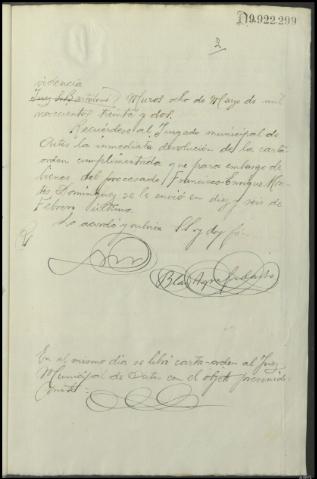 D9.922.299
2
videncia
Muros ocho de Mayo de mil
novecientos treinta y dos.
Recuérdese al Juzgado municipal de
Outes la inmediata devolución de la carta
orden cumplimentada que para embargo de
bienes del procesado Francisco Enrique
Domínguez se le envió en diez y seis de
Febrero último.
Lo acordó y rubrica S.Sª doy fe.
Blas Agra
En el mismo día se libró carta-orden al Juez
Municipal de Outes con el objeto prevenido